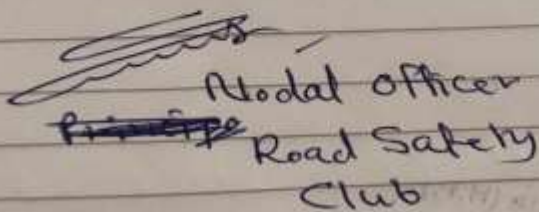 Nodal Officer
Road Safety
Club